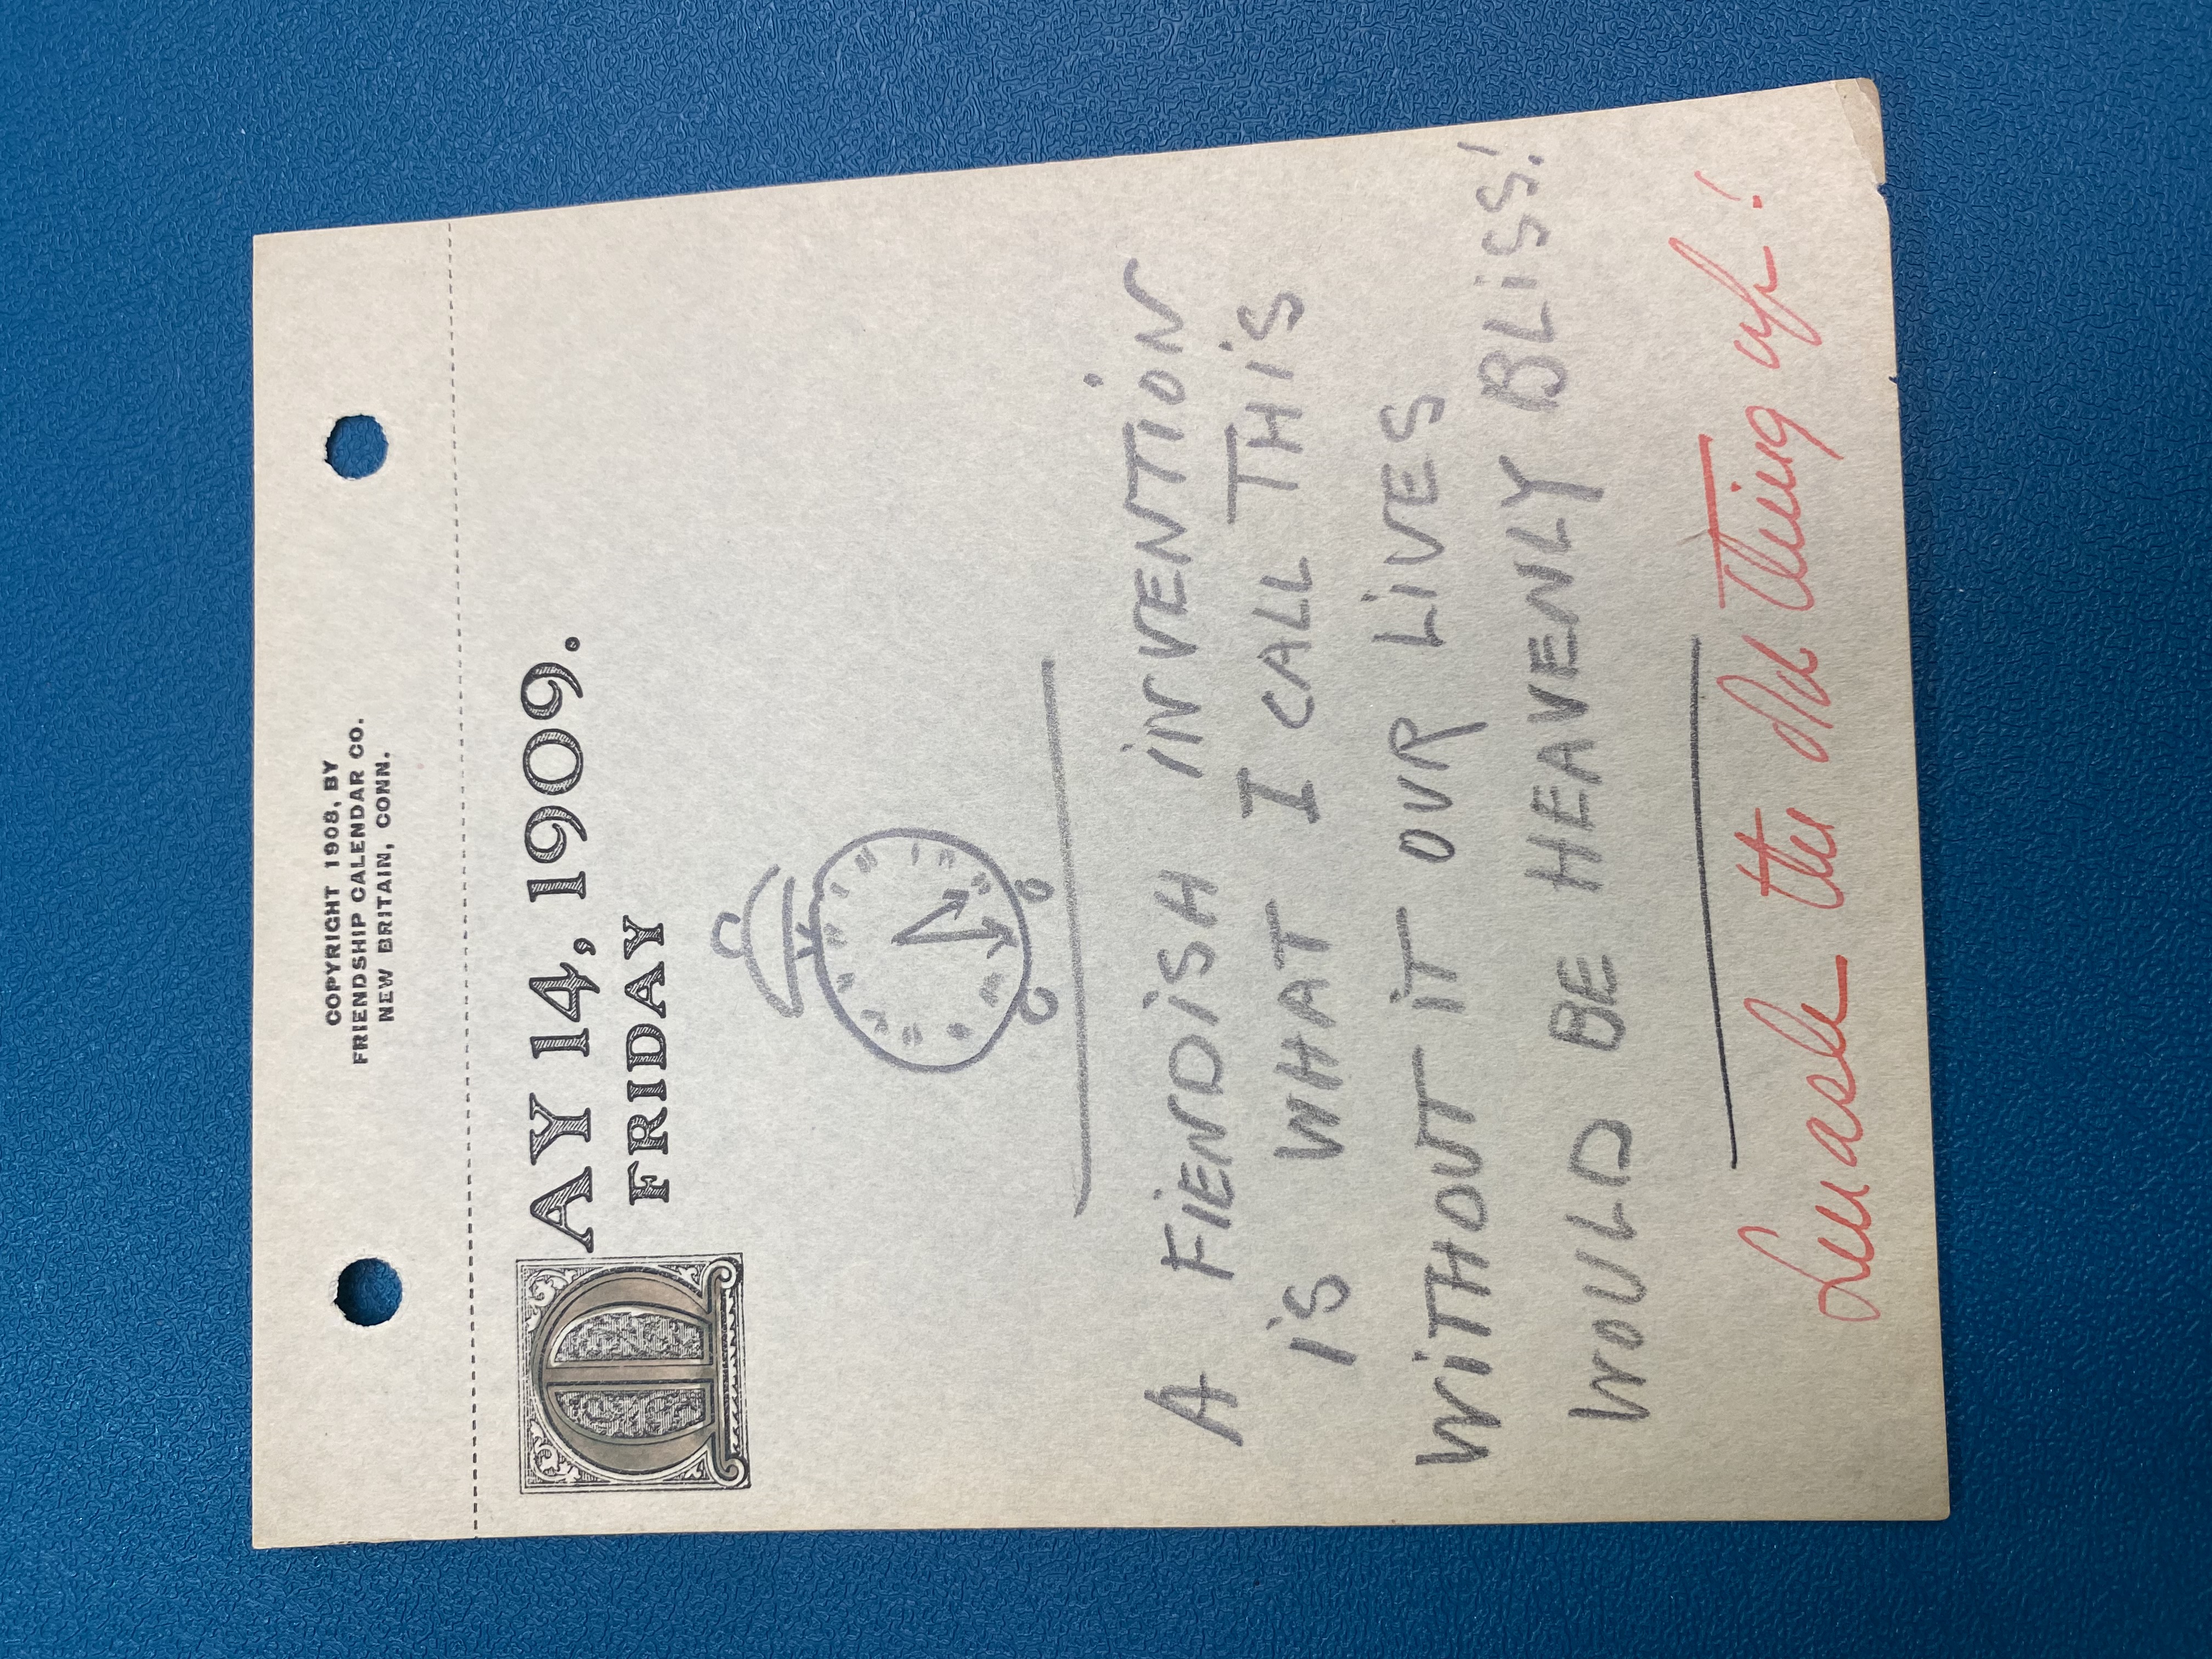 COPYRIGHT 1908, BY
FRIENDSHIP CALENDAR CO.
NEW BRITAIN, CONN.
MAY 14, 1909.
FRIDAY
A FiENDiSH iNVENTiON
iS WHAT I CALL THiS
WiTHOUT iT OUR LiVES
WOULD BE HEAVENLY BLiSS!
Smash the old thing up!